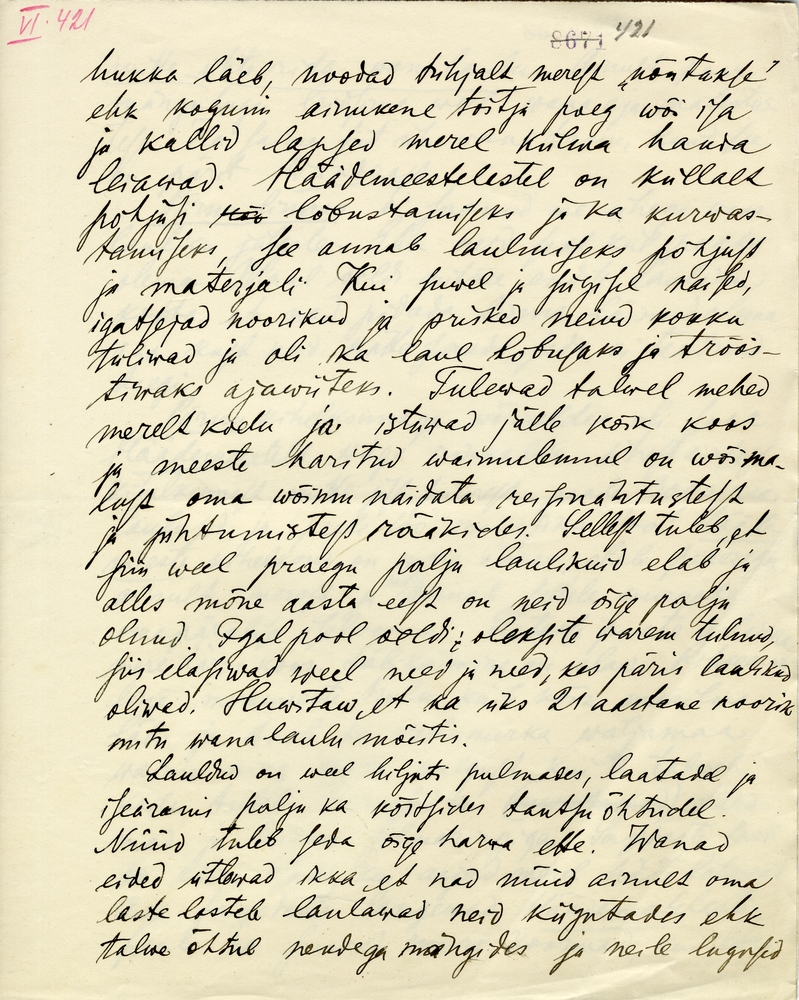 VI. 421
8671 421
hukka läeb, noodad tühjalt merest „nõutakse"
ehk koguni ainukene toitja poeg wõi isa
ja kallid lapsed merel külma hauda
leiawad. Häädemeestelastel on küllalt
põhjusi löbustamiseks ja ka kurwas-
tamiseks, see annab laulmiseks põhjust
ja materjali. Kui suwel ja sügisel naised,
igatsejad noorikud ja prisked neiud kokku
tuliwad ja oli ka laul lobusaks ja tröös-
tiwaks ajawiiteks. Tulewad talwel mehed
merelt kodu ja istuwad jälle kõik koos
ja meeste haritud waimulemmel on wõima-
lust oma wõimu näidata reisinähtustest
ja juhtumistest rääkides. Sellest tuleb, et
siin weel praegu palju laulikuid elab ja
alles mõne aasta eest on neid õige palju
olnud. Igalpool öeldi; oleksite warem tulnud,
siis elasiwad weel need ja need, kes päris laulikud
oliwad. Huwitaw, et ka üks 21 aastane noorik
mitu wana laulu mõistis.
Lauldud on weel hiljuti pulmades, laatadel ja
iseäranis palju ka kõrtsides tantsu õhtudel.
Nüüd tuleb seda õige harwa ette. Wanad
eided ütlewad ikka, et nad nüüd ainult oma
laste lastele laulawad neid kiigutades ehk
talwe õhtul nendega mängides ja neile lugusid